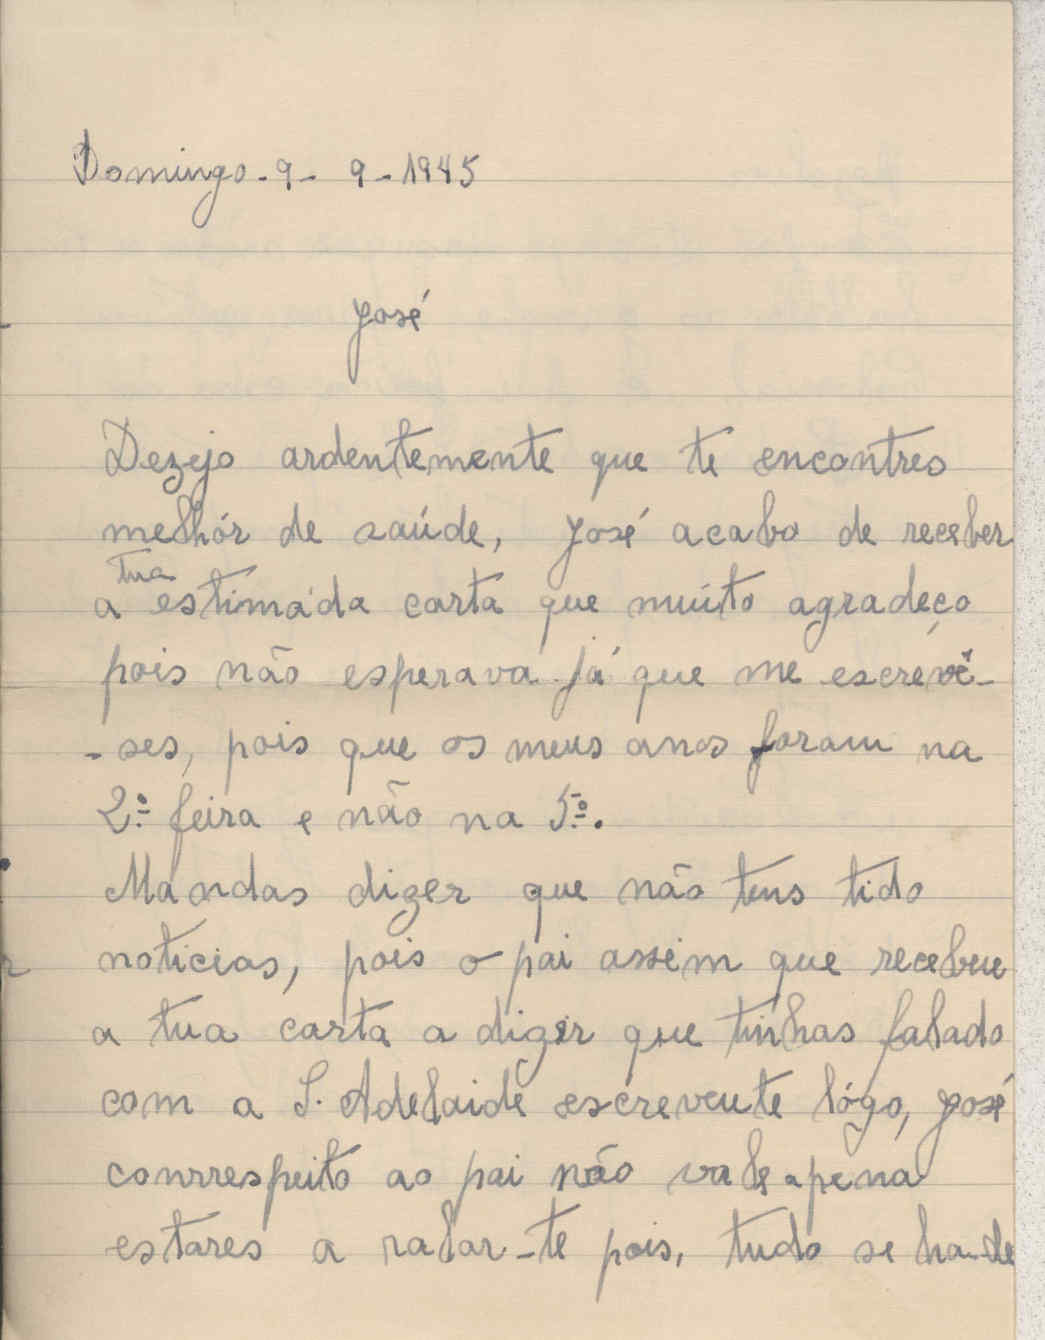 Domingo - 9 - 9 - 1945
José
Dezejo ardentemente que te encontres
melhór de saúde, José acabo de receber
a tua estimáda carta que muito agradeço
pois não esperava já que me escrevê-
- ses, pois que os meus anos foram na
2.º feira e não na 5.º.
Mandas dizer que não tens tido
noticias, pois o pai assim que recebeu
a tua carta a dizer que tinhas falado
com a S. Adelaide escreveu-te lógo, José
conrrespeito ao pai não vale a pena
estares a ralar-te pois, tudo se ha-de